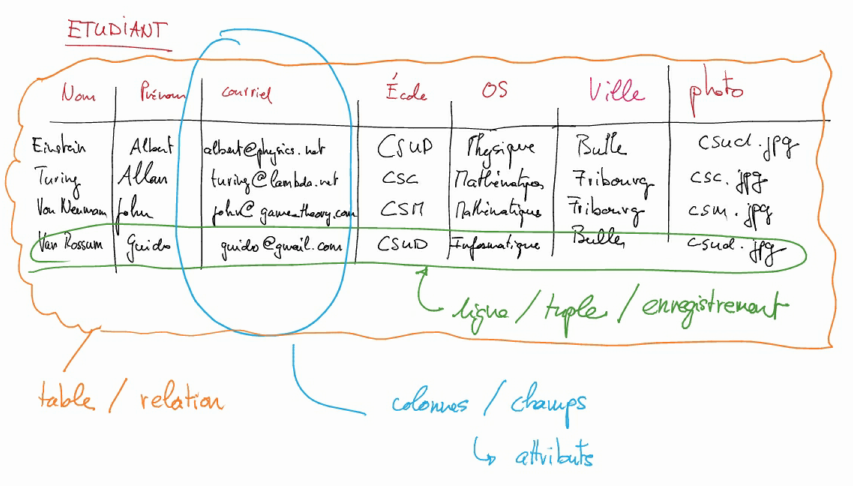 ETUDIANT
Nom Prénom courriel École OS Ville photo
Einstein Albert albert@physics.net CSUD Physique Bulle csud.jpg
Turing Allan turing@lambda.net CSC Mathématiques Fribourg csc.jpg
Von Neumann John john@gametheory.com CSM Mathématiques Fribourg csm.jpg
Van Rossum Guido guido@gmail.com CSUD Informatique Bulle csud.jpg
ligne / tuple / enregistrement
table / relation
colonnes / champs
↳ attributs